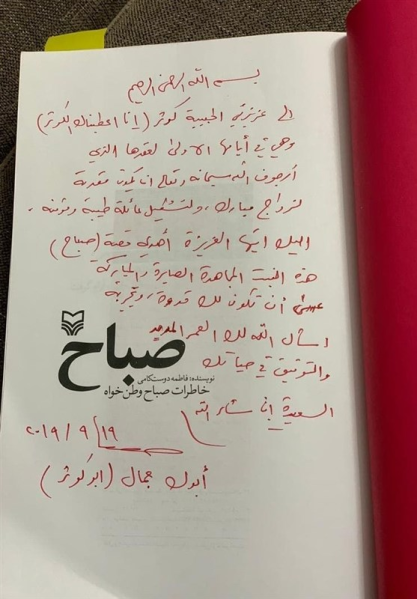 بسم الله الرحمن الرحيم
الى عزيزتي الحبيبة كوثر (إنا اعطيناك الكوثر)
وهي في أيامها الاولى لعقدها الذي
أرجو الله سبحانه وتعالى ان يكون مقدمة
لزواج مبارك، ولتشكيل عائلة طيبة ومؤمنة.
اليك ايتها العزيزة أهدي قصة (صباح)
هذه البنت المجاهدة الصابرة والمباركة
عسى أن تكون لك قدوة، وتجربة
اسأل الله لك العمر المديد
صباح
والتوفيق في حياتك
نویسنده: فاطمه دوست‌کامی
خاطرات صباح وطن‌خواه
السعيدة إن شاء الله
٢٠١٩ / ٩ / ١٩
أبوك جمال (ابو كوثر)